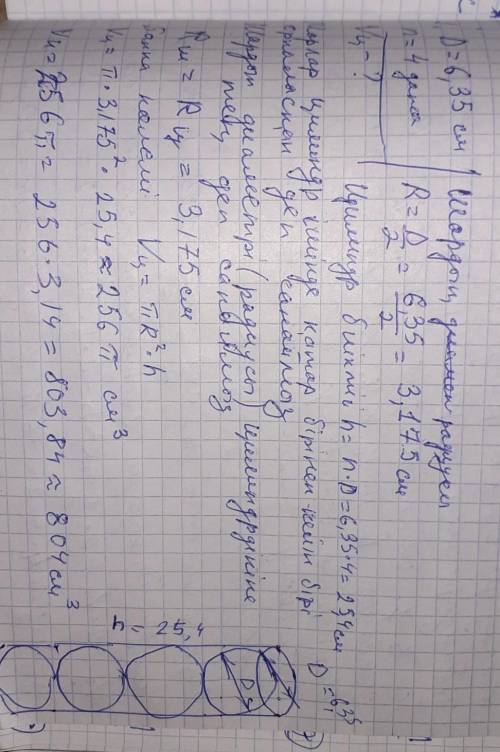 D = 6,35 см
n = 4 дана
Vц - ?
Шардың радиусы
R = D/2 = 6,35/2 = 3,175 см
Цилиндр биіктігі h = n·D = 6,35·4 = 25,4 см
Шарлар цилиндр ішінде қатар бірінен кейін бірі
орналасқан деп санаймыз
Шардың диаметрі (радиусы) цилиндрдікіне
тең деп санаймыз
Rш = Rц = 3,175 см
Банка көлемі Vц = πR²·h
Vц = π·3,175²·25,4 ≈ 256π см³
Vц = 256π = 256·3,14 = 803,84 ≈ 804 см³
D = 6,35
h = 25,4
D